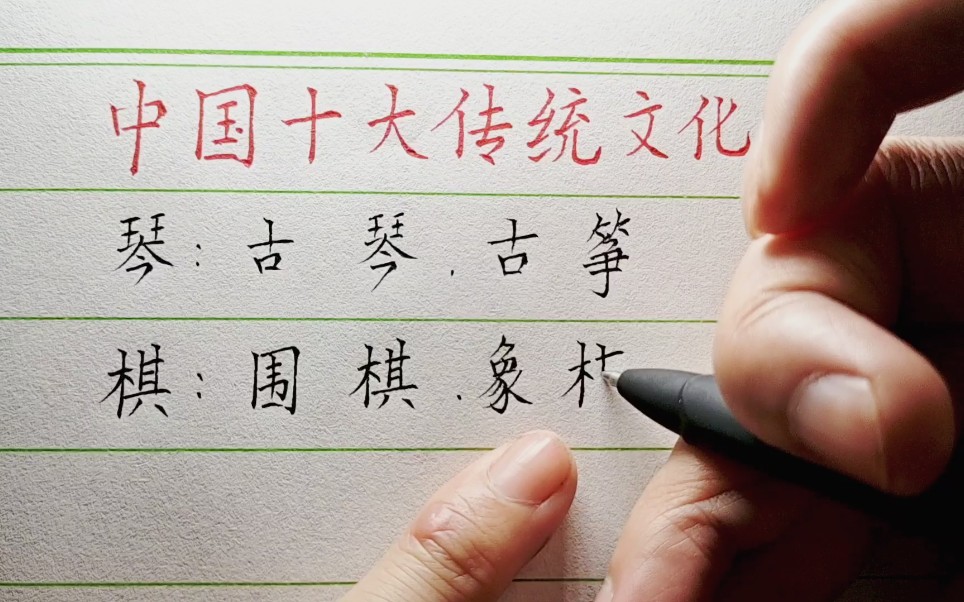 中国十大传统文化
琴：古琴.古筝
棋：围棋.象